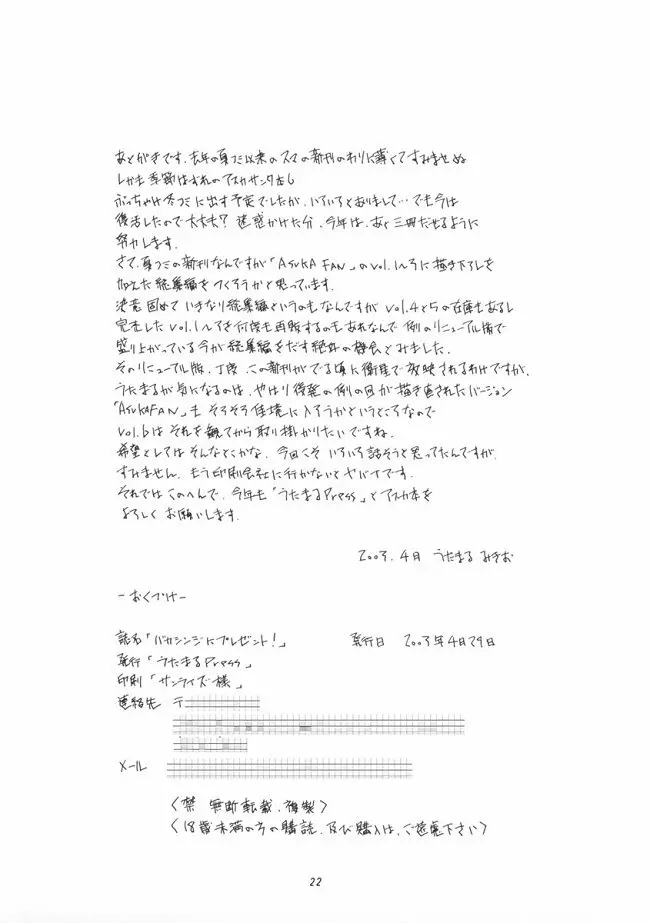 あとがきです。去年の夏コミ以来のアスカの新刊のわりに薄くてすみませぬ
しかも季節はずれのアスカサンタ本も
ぶっちゃけ冬コミに出す予定でしたが、いろいろとありまして…でも今は
復活したので大丈夫? 迷惑かけた分、今年は、あと三冊だせるように
努力します.
さて、夏コミの新刊なんですが「ASUKA FAN」のVol.1〜3に描き下ろしを
加えた総集編をつくろうかと思っています.
決意固めていきなり総集編というのもなんですがVol.4と5の在庫もあるし
完売したVol.1〜3を何度も再販するのもあれなんで例のリニューアル版で
盛り上がっている今が総集編をだす絶好の機会とみました.
そのリニューアル版、丁度、この新刊がでる頃に衛星で放映されるわけですが、
うたまるが気になるのは、やはり後発の例の回が描き直されたバージョン
「ASUKAFAN」も そろそろ佳境に入ろうかというところなので
Vol.6は それを観てから取り掛かりたいですね.
希望としてはそんなとこかな、今回こそ いろいろ話そうと思ってたんですが、
すみません、もう印刷会社に行かないとヤバイです.
それではこのへんで、今年も「うたまるPress」とアスカ本を
よろしく お願いします.
2003.4月 うたまる みきお
ーおくづけー
誌名「バカシンジにプレゼント!」 発行日 2003年4月29日
発行「うたまるPress」
印刷「サンライズ様」
連絡先 〒
メール
〈禁 無断転載、複製〉
〈18歳未満の方の購読、及び購入は、ご遠慮下さい〉
22